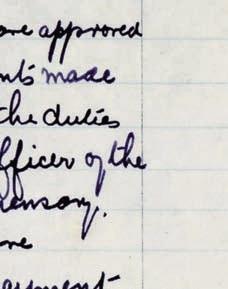 are approved
nts made
the duties
fficer of the
pensary.
are
ayment